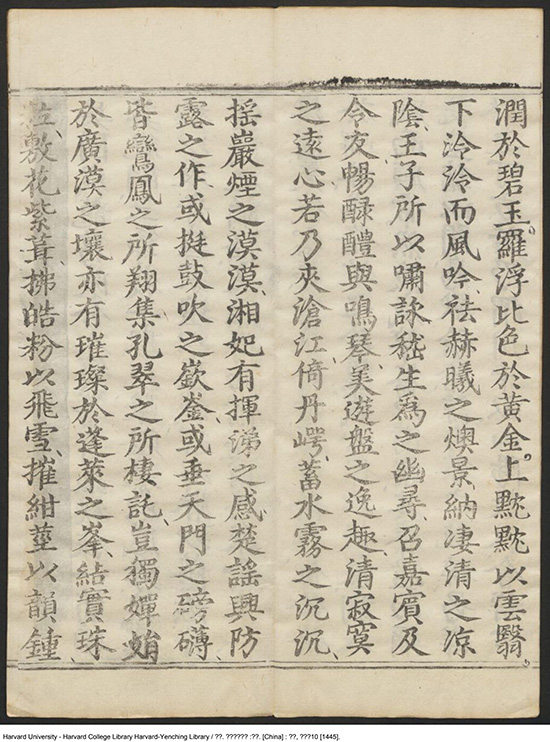 潤於碧玉。羅浮比色於黄金。上黕黕以雲翳、
下泠泠而風吟、祛赫曦之燠景、納凄清之凉
陰、王子所以嘯詠、嵇生爲之幽尋、召嘉賓及
令友、暢醁醴與鳴琴、美遊盤之逸趣、清寂寞
之遠心、若乃夾滄江、倚丹崿、蓄水霧之沉沉、
揺巖煙之漠漠、湘妃有揮涕之感、楚謡興防
露之作、或挺鼓吹之嶔崟、或垂天門之磅礴、
皆鸞鳳之所翔集、孔翠之所棲託、豈獨嬋蛸
於廣漠之壤、亦有璀璨於蓬萊之峯、結實珠
粒、敷花紫茸、拂皓粉以飛雪、摧紺莖以韻鍾、
Harvard University - Harvard College Library Harvard-Yenching Library / ??. ?????? :??. [China] : ??, ???10 [1445].